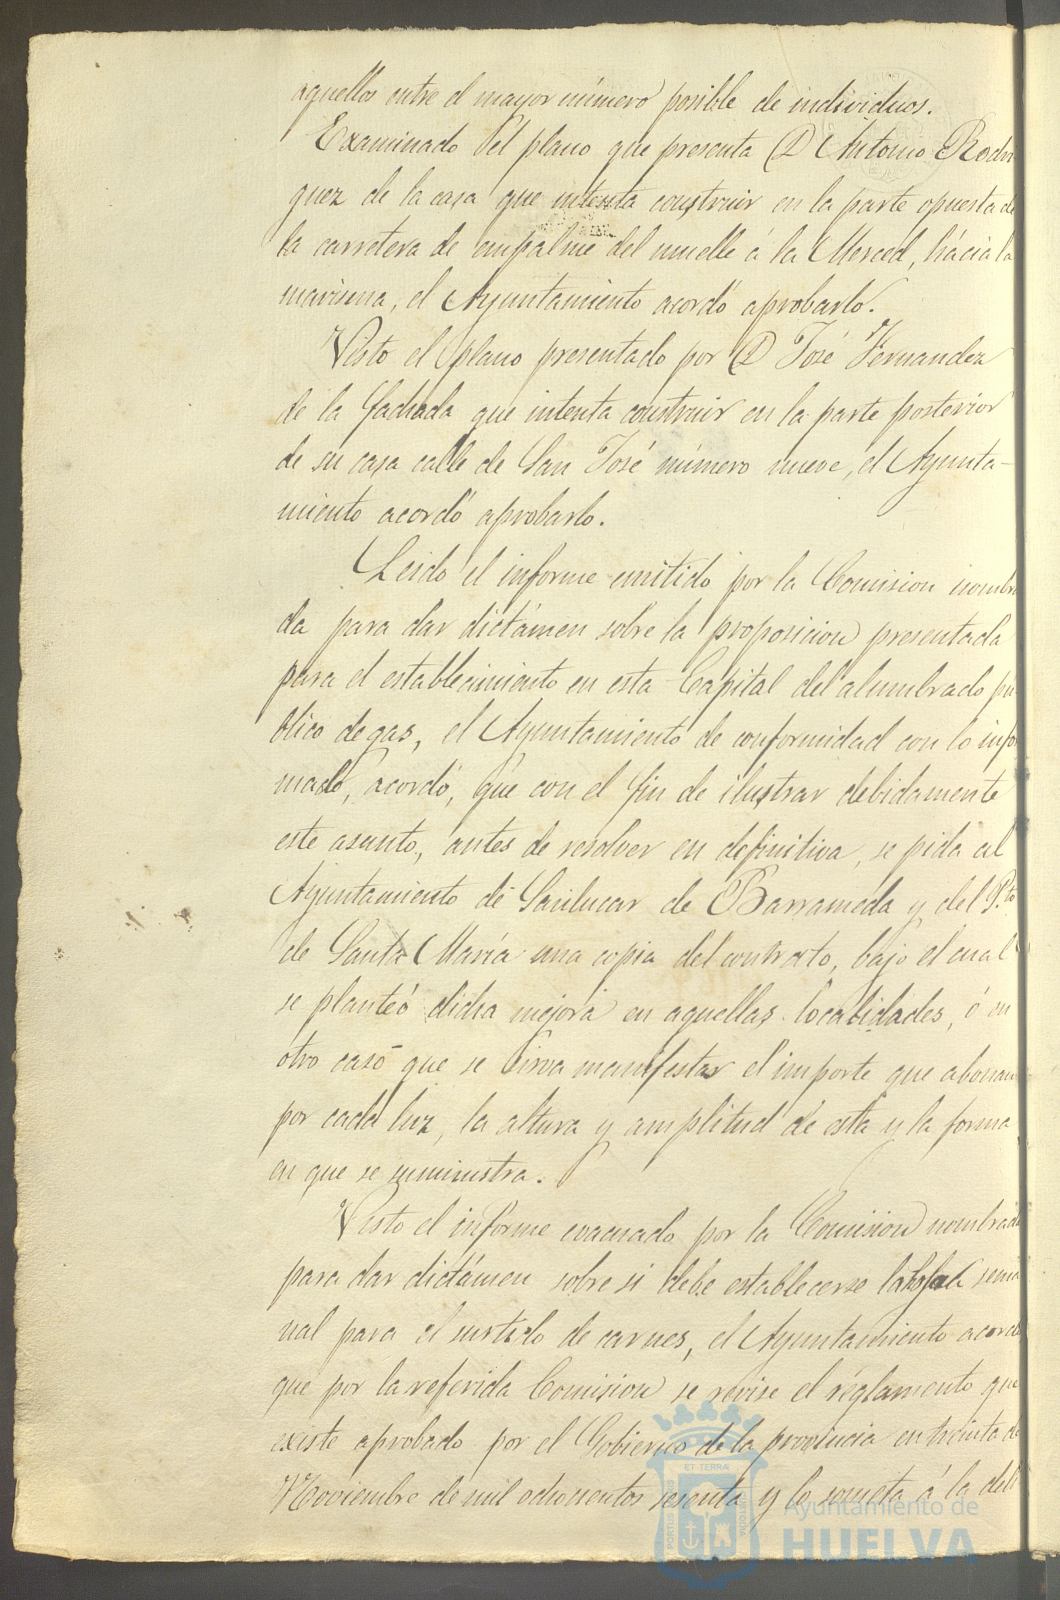 aquellos entre el mayor número posible de individuos.
Examinado el plano que presenta D Antonio Rodri
guez de la casa que intenta construir en la parte opuesta de
la carretera de empalme del muelle á la Merced, hácia la
marisma, el Ayuntamiento acordó aprobarlo.
Visto el plano presentado por D José Fernandez
de la fachada que intenta construir en la parte posterior
de su casa calle de San José número nueve, el Ayunta-
miento acordó aprobarlo.
Leido el informe emitido por la Comision nombra
da para dar dictámen sobre la proposicion presentada
para el establecimiento en esta Capital del alumbrado pu
blico de gas, el Ayuntamiento de conformidad con lo infor
mado, acordó, que con el fin de ilustrar debidamente
este asunto, antes de resolver en definitiva, se pida al
Ayuntamiento de Sanlucar de Barrameda y del P.to
de Santa María una copia del contrato, bajo el cual
se planteó dicha mejora en aquellas localidades, ó en
otro caso que se sirva manifestar el importe que abonan
por cada luz, la altura y amplitud de esta y la forma
en que se suministra.
Visto el informe evacuado por la Comision nombrada
para dar dictámen sobre si debe establecerse la sema
nal para el surtido de carnes, el Ayuntamiento acordó
que por la referida Comision se revise el reglamento que
existe aprobado por el Gobierno de la provincia en treinta de
Noviembre de mil ochocientos sesenta y lo someta á la deli
ET TERRAE
PORTUS
CUSTODIA
Ayuntamiento de
HUELVA